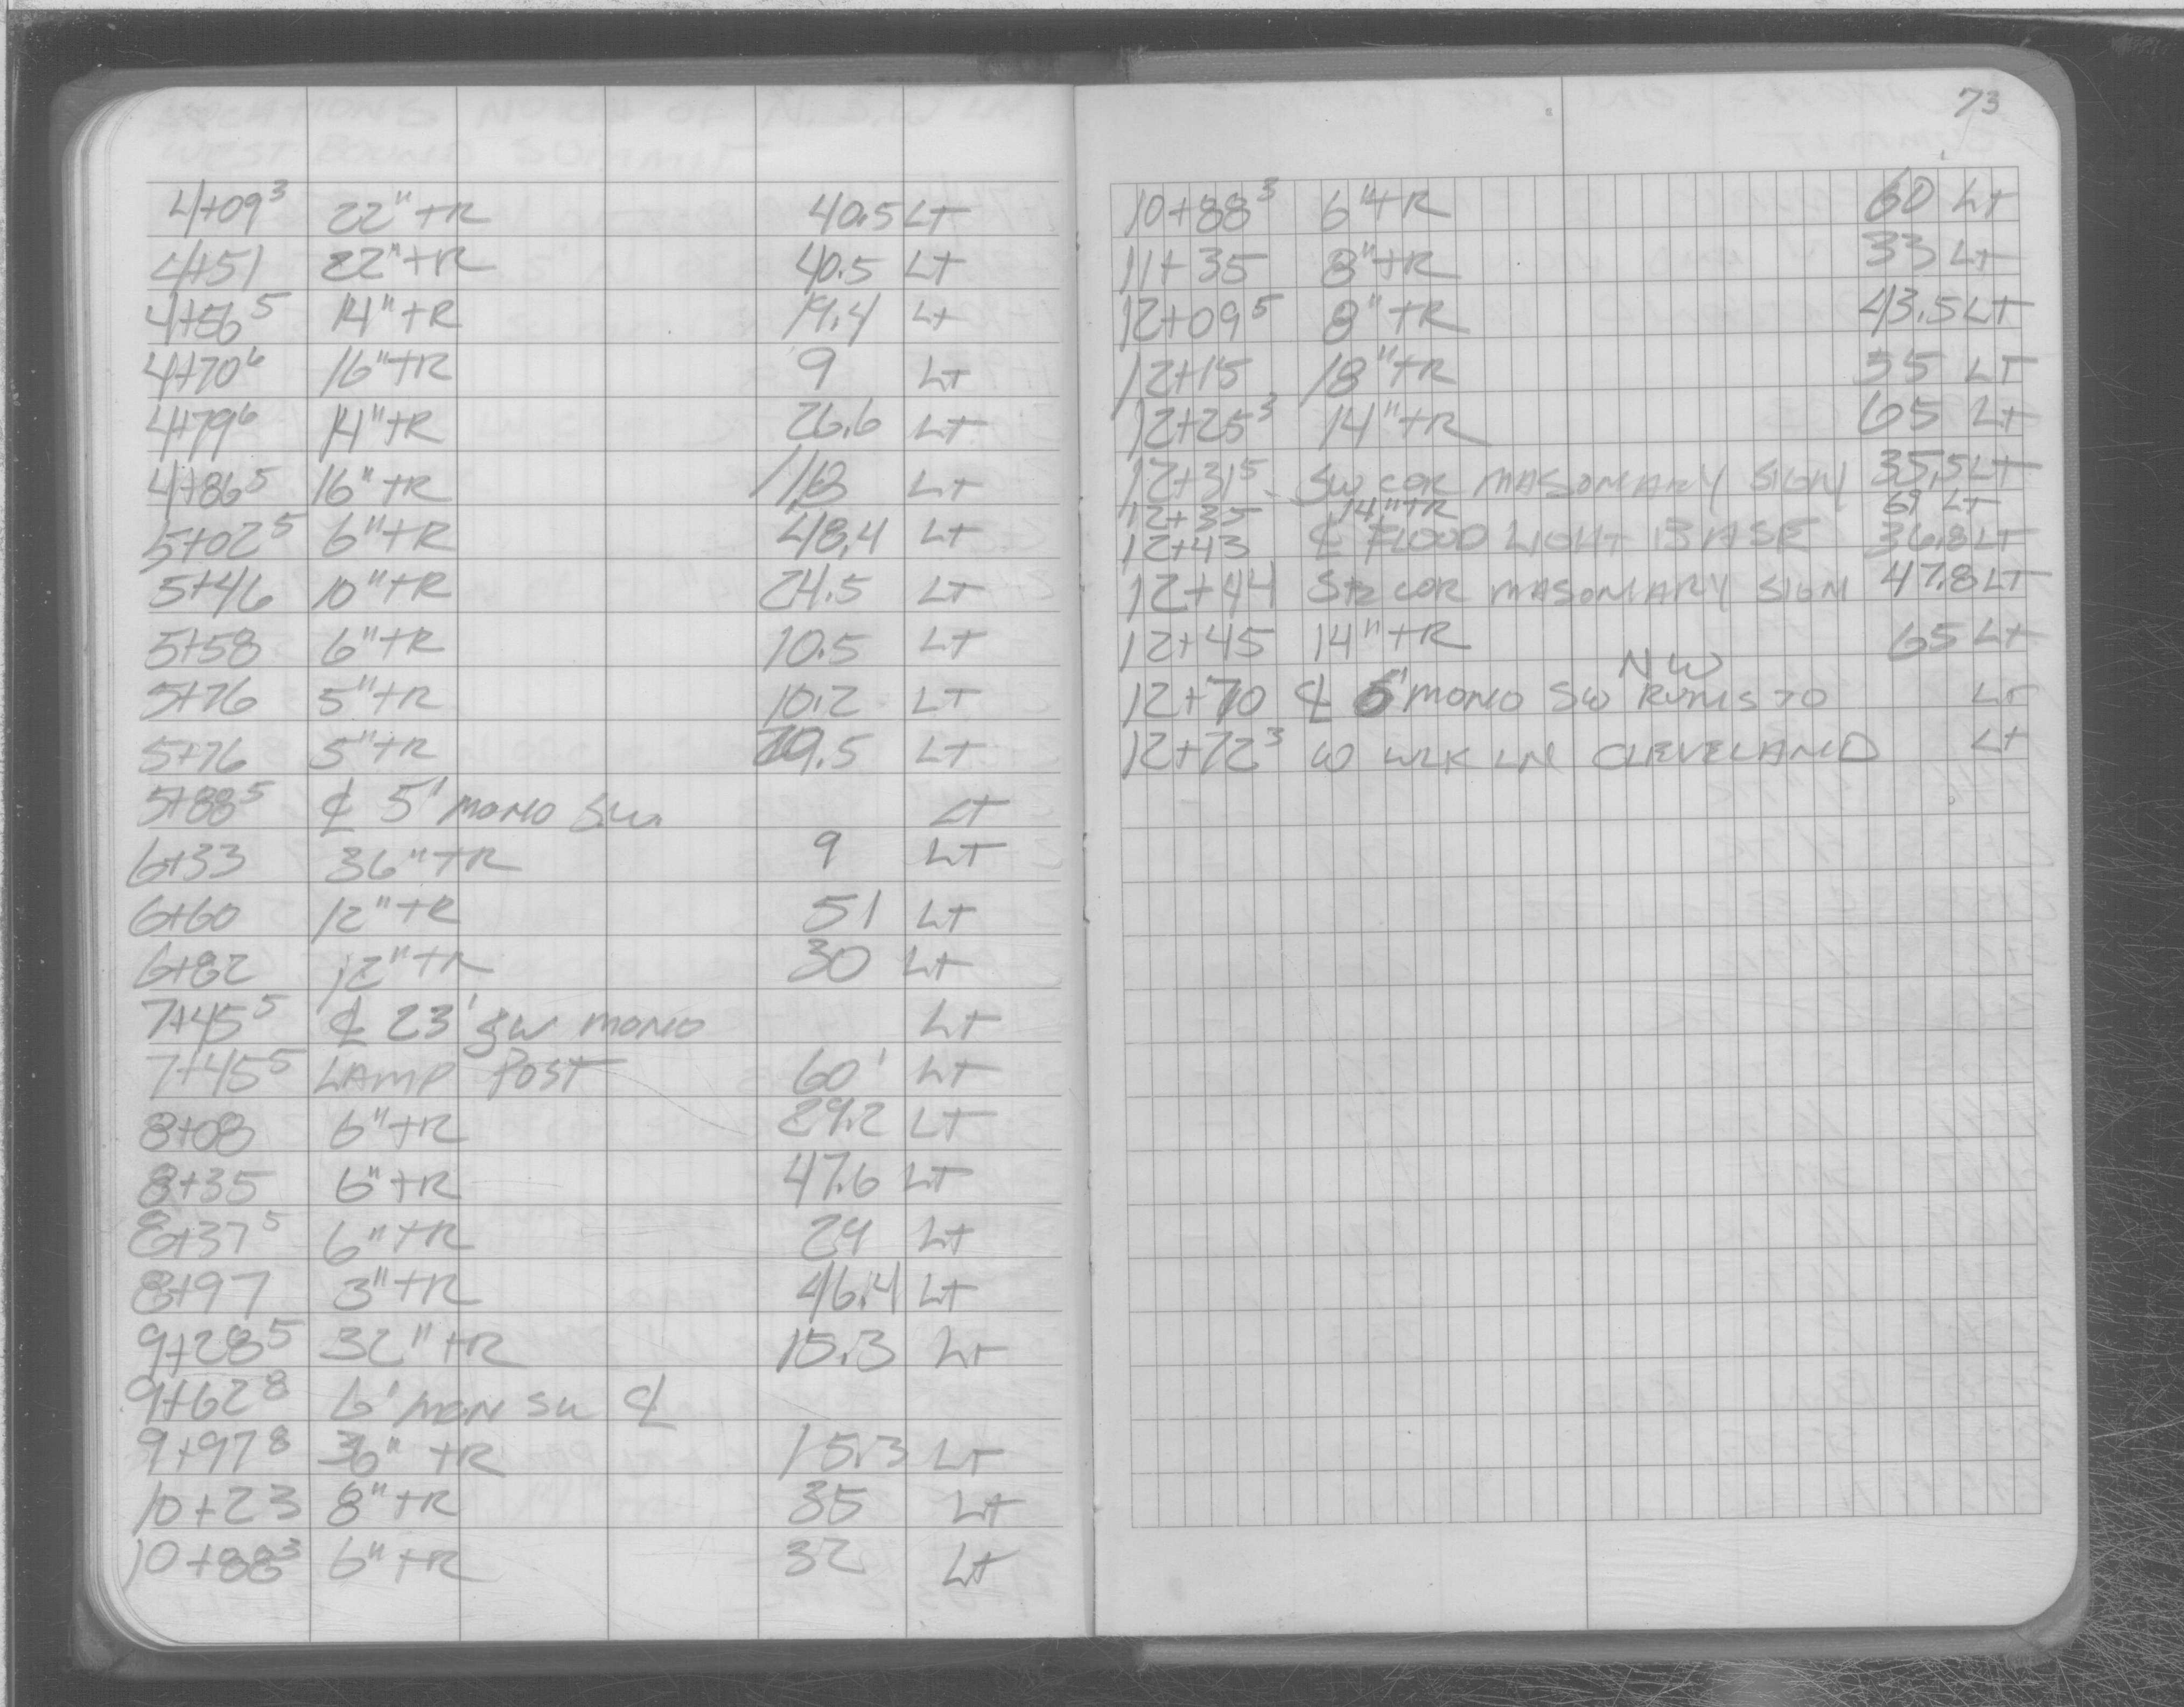 LOCATIONS NORTH OF N. S.W LN
WEST BOUND SUMMIT
4+09³ 22"TR 40.5 LT
4+51 22"TR 40.5 LT
4+56⁵ 14"TR 19.4 LT
4+70⁶ 16"TR 9 LT
4+79⁶ 14"TR 26.6 LT
4+86⁵ 16"TR LT
5+02⁵ 6"TR 48.4 LT
5+46 10"TR 24.5 LT
5+58 6"TR 10.5 LT
5+76 5"TR 10.2 LT
5+76 5"TR 29.5 LT
5+88⁵ ℄ 5' MONO S.W. LT
6+33 36"TR 9 LT
6+60 12"TR 51 LT
6+82 12"TR 30 LT
7+45⁵ ℄ 23' SW MONO LT
7+45⁵ LAMP POST 60' LT
8+08 6"TR 29.2 LT
8+35 6"TR 47.6 LT
8+37⁵ 6"TR 29 LT
8+97 3"TR 46.4 LT
9+28⁵ 32"TR 15.3 LT
9+62⁸ 6' MON SW ℄
9+97⁸ 36" TR 15.3 LT
10+23 8"TR 35 LT
10+88³ 6"TR 32 LT
73
10+88³ 6"TR 60 LT
11+35 8"TR 33 LT
12+09⁵ 8"TR 43.5 LT
12+15 18"TR 55 LT
12+25³ 14"TR 65 LT
12+31⁵ SW COR MASONARY SIGN 35.5 LT
12+35 14"TR 69 LT
12+43 ℄ FLOOD LIGHT BASE 36.8 LT
12+44 SE COR MASONARY SIGN 47.8 LT
12+45 14"TR 65 LT
NW
12+70 ℄ 5' MONO SW RUNS TO LT
12+72³ W WLK LN CLEVELAND LT